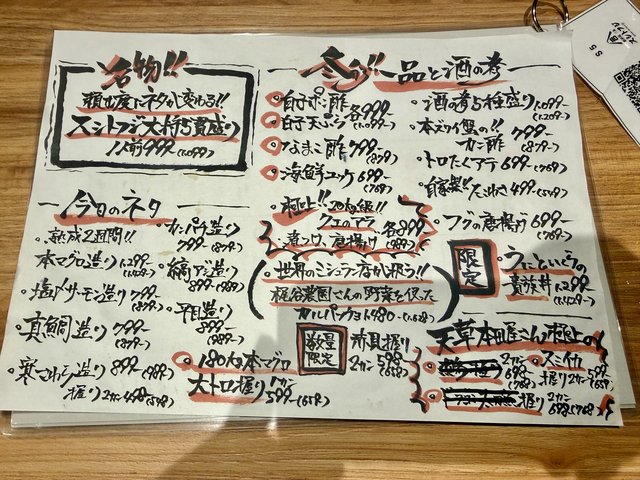 名物!!
頼む度にネタが変わる!!
スシトフジ大将5貫盛り
1人前 999- (1,099-)
今日のネタ
・熟成2週間!!
本マグロ造り 1,299-
・塩〆サーモン造り 799- (879-)
・真鯛造り 799- (879-)
・寒さわら造り 899- (989-)
握り 2カン 498-
・カンパチ造り
799- (879-)
・縞アジ造り
899- (989-)
・平目造り
899- (989-)
・180kg本マグロ
大トロ握り 1カン
599- (659-)
冬の!! 一品と酒の肴
・白子ポン酢 各999-
・白子天ぷら (1,099-)
・なまこ酢 799- (879-)
・海鮮ユッケ 699- (769-)
・極上!! 20kg級!!
クエのアラ
煮つけ、唐揚げ 各899 (989-)
・世界のミシュラン店が扱う!!
梶谷農園さんの野菜を使った
カルパッチョ 1480-
数量
限定
2カン 598-
・酒の肴5種盛り 1,099- (1,209-)
・本ズワイ蟹の!!
カニ酢 799- (879-)
・トロたくアテ 699- (769-)
・自家製!! 499- (549-)
・フグの唐揚げ 699- (769-)
限定
・うにといくらの
贅沢丼 1,299-
天草本田屋さん極上の
2カン 698- (768-)
・スミイカ
握り 2カン 599- (659-)
握り 2カン
698- (768-)